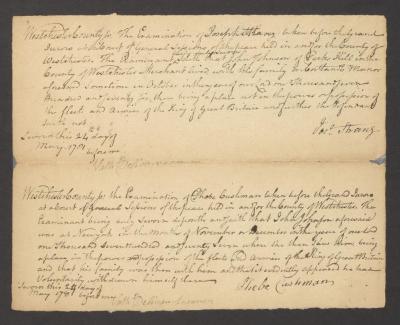 Westchester County ss. The Examination of Joseph Strang taken before the Grand
Jurors at a Court of General Sessions of the peace held in and for the County of
Westchester. The Examinant saith that John Johnson of Peeks Kill in the
County of Westchester Merchant lived with the family in Cortlandt Manor
aforesaid sometime in October in the year of our Lord one Thousand seven
Hundred and Seventy six, then being a place not in the power or possession of
the fleet and Armies of the King of Great Britain and further the Examinant
saith not.
Sworn this 24th day of
May 1781 before
Jos. Strang
Westchester County ss. the Examination of Phebe Cushman taken before the Grand Jurors
at a Court of General Sessions of the peace held in and for the County of Westchester. The
Examinant being duly Sworn deposeth and saith that John Johnson aforesaid
was at New York in the Month of November or December in the year of our Lord
one Thousand Seven hundred and Seventy Seven when she then saw him being
a place in the power and possession of the fleets and Armies of the King of Great Britain
and that his family was then with him and that it evidently appeared he had
Voluntarily withdrawn himself there
Sworn this 24 day of
May 1781 before me
Phebe Cushman